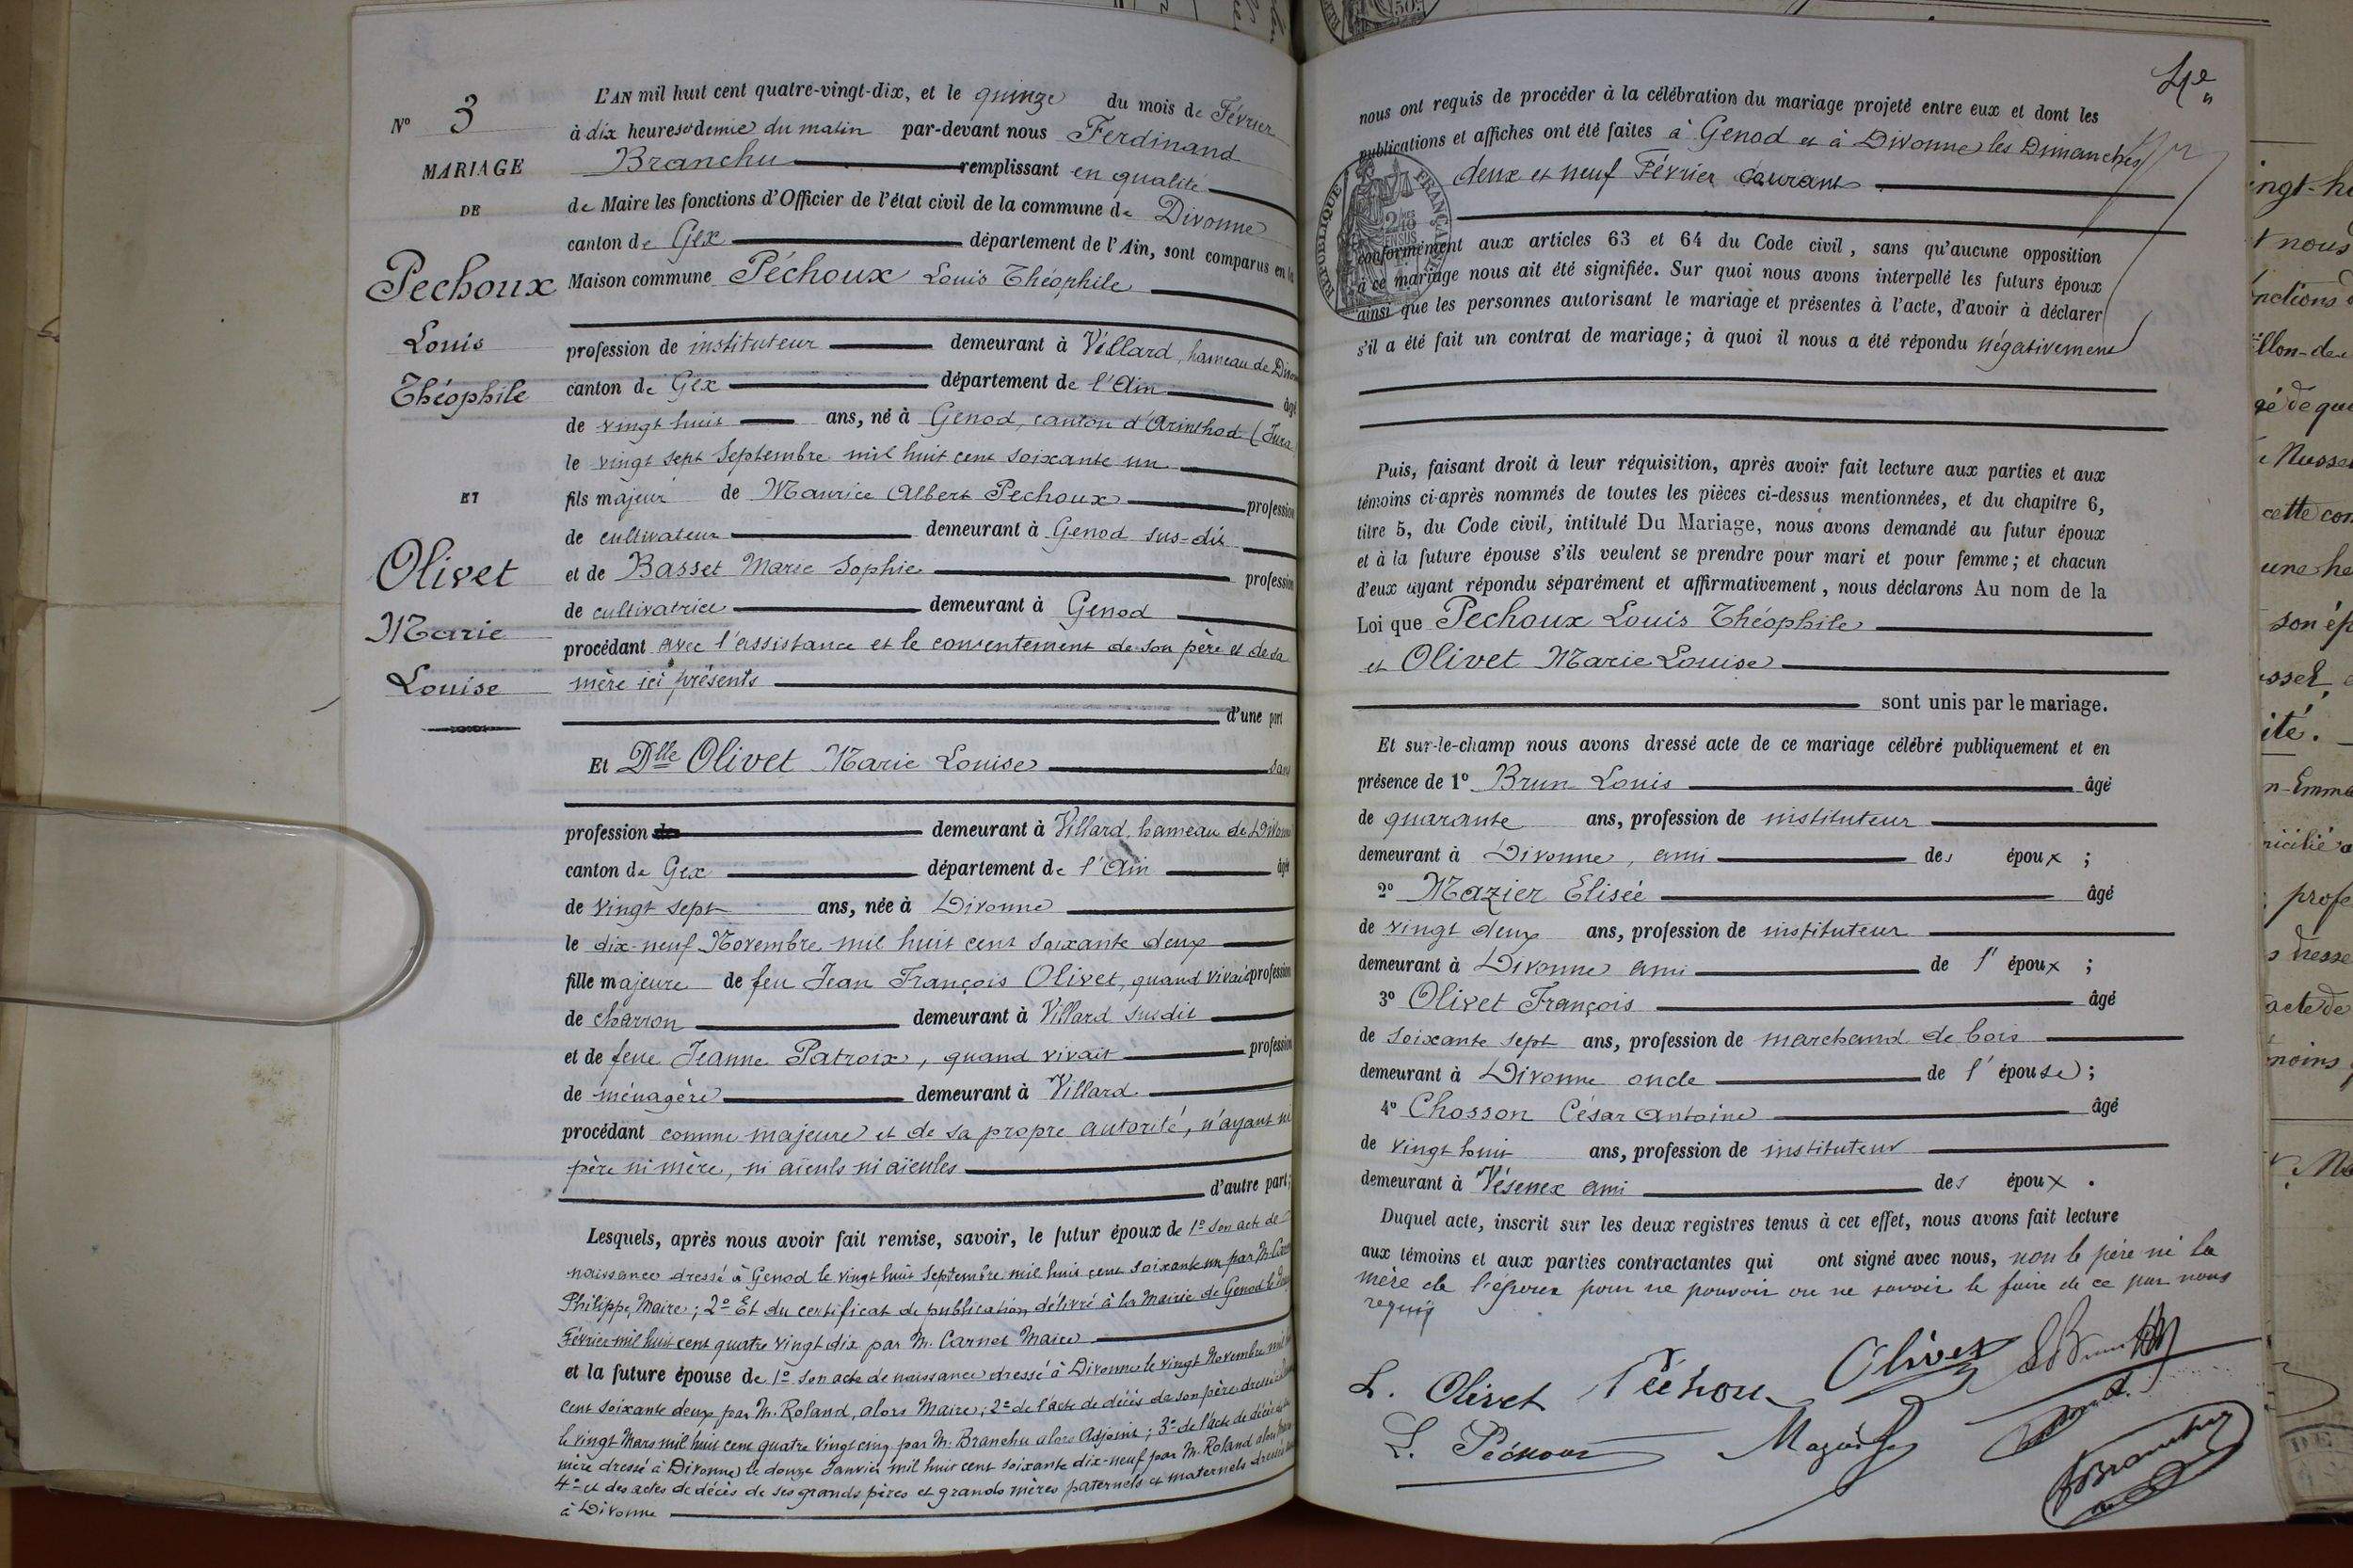 N° 3
MARIAGE
DE
Pechoux
Louis
Théophile
ET
Olivet
Marie
Louise
L'AN mil huit cent quatre-vingt-dix, et le quinze du mois de Février
à dix heures et demie du matin par-devant nous Ferdinand
Branchu remplissant en qualité
de Maire les fonctions d'Officier de l'état civil de la commune de Divonne
canton de Gex département de l'Ain, sont comparus en la
Maison commune Péchoux Louis Théophile
profession de instituteur demeurant à Villard, hameau de
canton de Gex département de l'Ain âgé
de vingt huit ans, né à Genod, canton d'Arinthod (Jura
le vingt sept Septembre mil huit cent soixante un
fils majeur de Maurice Albert Pechoux profession
de cultivateur demeurant à Genod sus-dit
et de Basset Marie Sophie profession
de cultivatrice demeurant à Genod
procédant avec l'assistance et le consentement de son père et de sa
mère ici présents
d'une part
Et Dlle Olivet Marie Louise sans
profession demeurant à Villard, hameau de Divonne
canton de Gex département de l'Ain âgée
de vingt sept ans, née à Divonne
le dix-neuf Novembre mil huit cent soixante deux
fille majeure de feu Jean François Olivet, quand vivait profession
de charron demeurant à Villard susdit
et de feue Jeanne Patroix, quand vivait profession
de ménagère demeurant à Villard
procédant comme majeure et de sa propre autorité, n'ayant ni
père ni mère, ni aïeuls ni aïeules
d'autre part;
Lesquels, après nous avoir fait remise, savoir, le futur époux de 1° son acte de
naissance dressé à Genod le vingt huit Septembre mil huit cent soixante un par M.
Philippe, Maire; 2° Et du certificat de publication délivré à la Mairie de Genod le
Février mil huit cent quatre vingt dix par M. Carnet Maire
et la future épouse de 1° son acte de naissance dressé à Divonne le vingt Novembre mil
cent soixante deux par M. Roland, alors Maire; 2° de l'acte de décès de son père dressé
le vingt Mars mil huit cent quatre vingt cinq par M. Branchu alors Adjoint; 3° de l'acte de décès de
mère dressé à Divonne le douze Janvier mil huit cent soixante dix-neuf par M. Roland alors
4° et des actes de décès de ses grands pères et grands mères paternels et maternels dressés
à Divonne
nous ont requis de procéder à la célébration du mariage projeté entre eux et dont les
publications et affiches ont été faites à Genod et à Divonne les Dimanches
deux et neuf Février courant
RÉPUBLIQUE FRANÇAISE
conformément aux articles 63 et 64 du Code civil, sans qu'aucune opposition
à ce mariage nous ait été signifiée. Sur quoi nous avons interpellé les futurs époux
ainsi que les personnes autorisant le mariage et présentes à l'acte, d'avoir à déclarer
s'il a été fait un contrat de mariage; à quoi il nous a été répondu négativement
Puis, faisant droit à leur réquisition, après avoir fait lecture aux parties et aux
témoins ci-après nommés de toutes les pièces ci-dessus mentionnées, et du chapitre 6,
titre 5, du Code civil, intitulé Du Mariage, nous avons demandé au futur époux
et à la future épouse s'ils veulent se prendre pour mari et pour femme; et chacun
d'eux ayant répondu séparément et affirmativement, nous déclarons Au nom de la
Loi que Pechoux Louis Théophile
et Olivet Marie Louise
sont unis par le mariage.
Et sur-le-champ nous avons dressé acte de ce mariage célébré publiquement et en
présence de 1° Brun Louis âgé
de quarante ans, profession de instituteur
demeurant à Divonne, ami des époux;
2° Mazier Elisée âgé
de vingt deux ans, profession de instituteur
demeurant à Divonne ami de l'époux;
3° Olivet François âgé
de soixante sept ans, profession de marchand de bois
demeurant à Divonne oncle de l'épouse;
4° Chosson César Antoine âgé
de vingt huit ans, profession de instituteur
demeurant à Vésenex ami des époux.
Duquel acte, inscrit sur les deux registres tenus à cet effet, nous avons fait lecture
aux témoins et aux parties contractantes qui ont signé avec nous, non le père ni la
mère de l'époux pour ne pouvoir ou ne savoir le faire de ce par nous
requis
L. Olivet Péchoux Olivet
L. Péchoux Mazier
Branchu